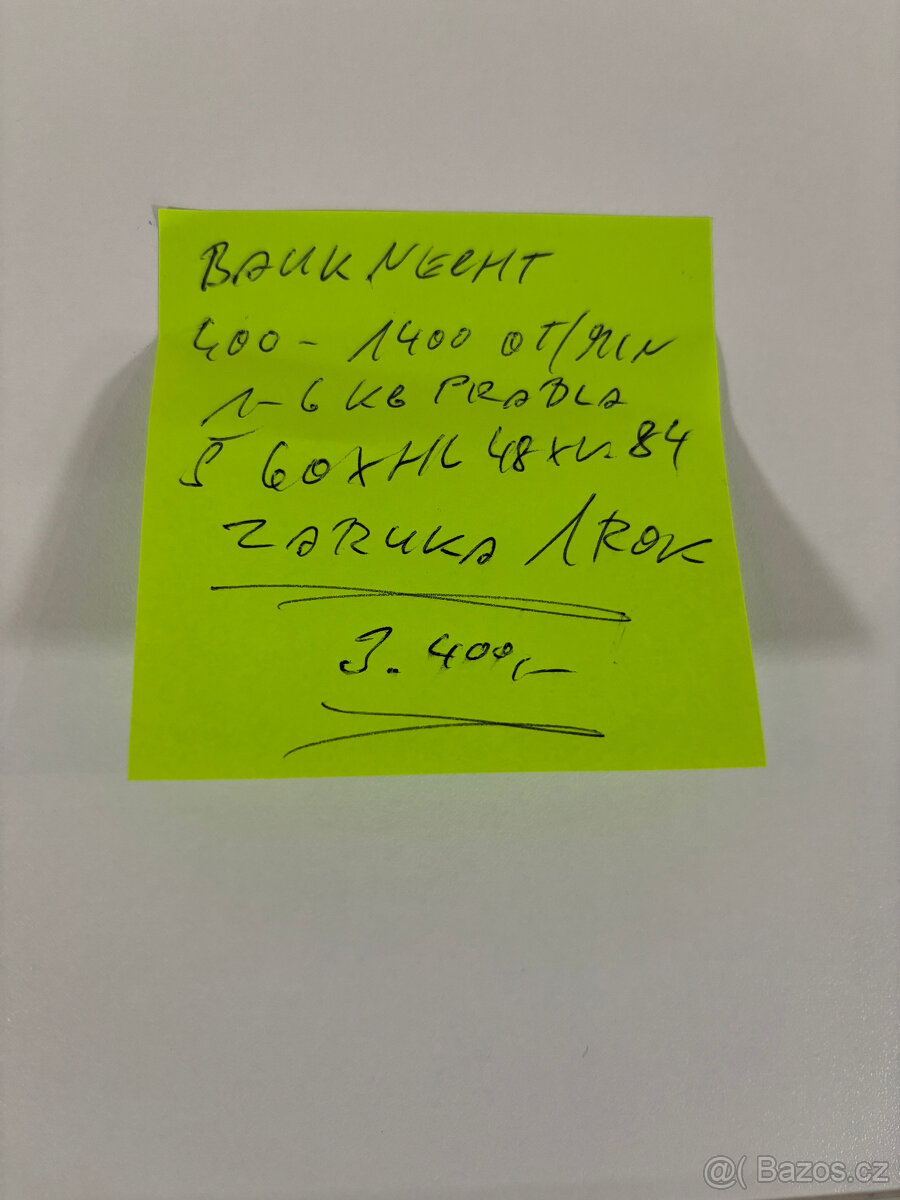 BAUKNECHT
400 - 1400 OT/MIN
1-6 KG PRADLA
Š 60XHL 48XV. 84
ZARUKA 1ROK
3.400,-
@( Bazos.cz